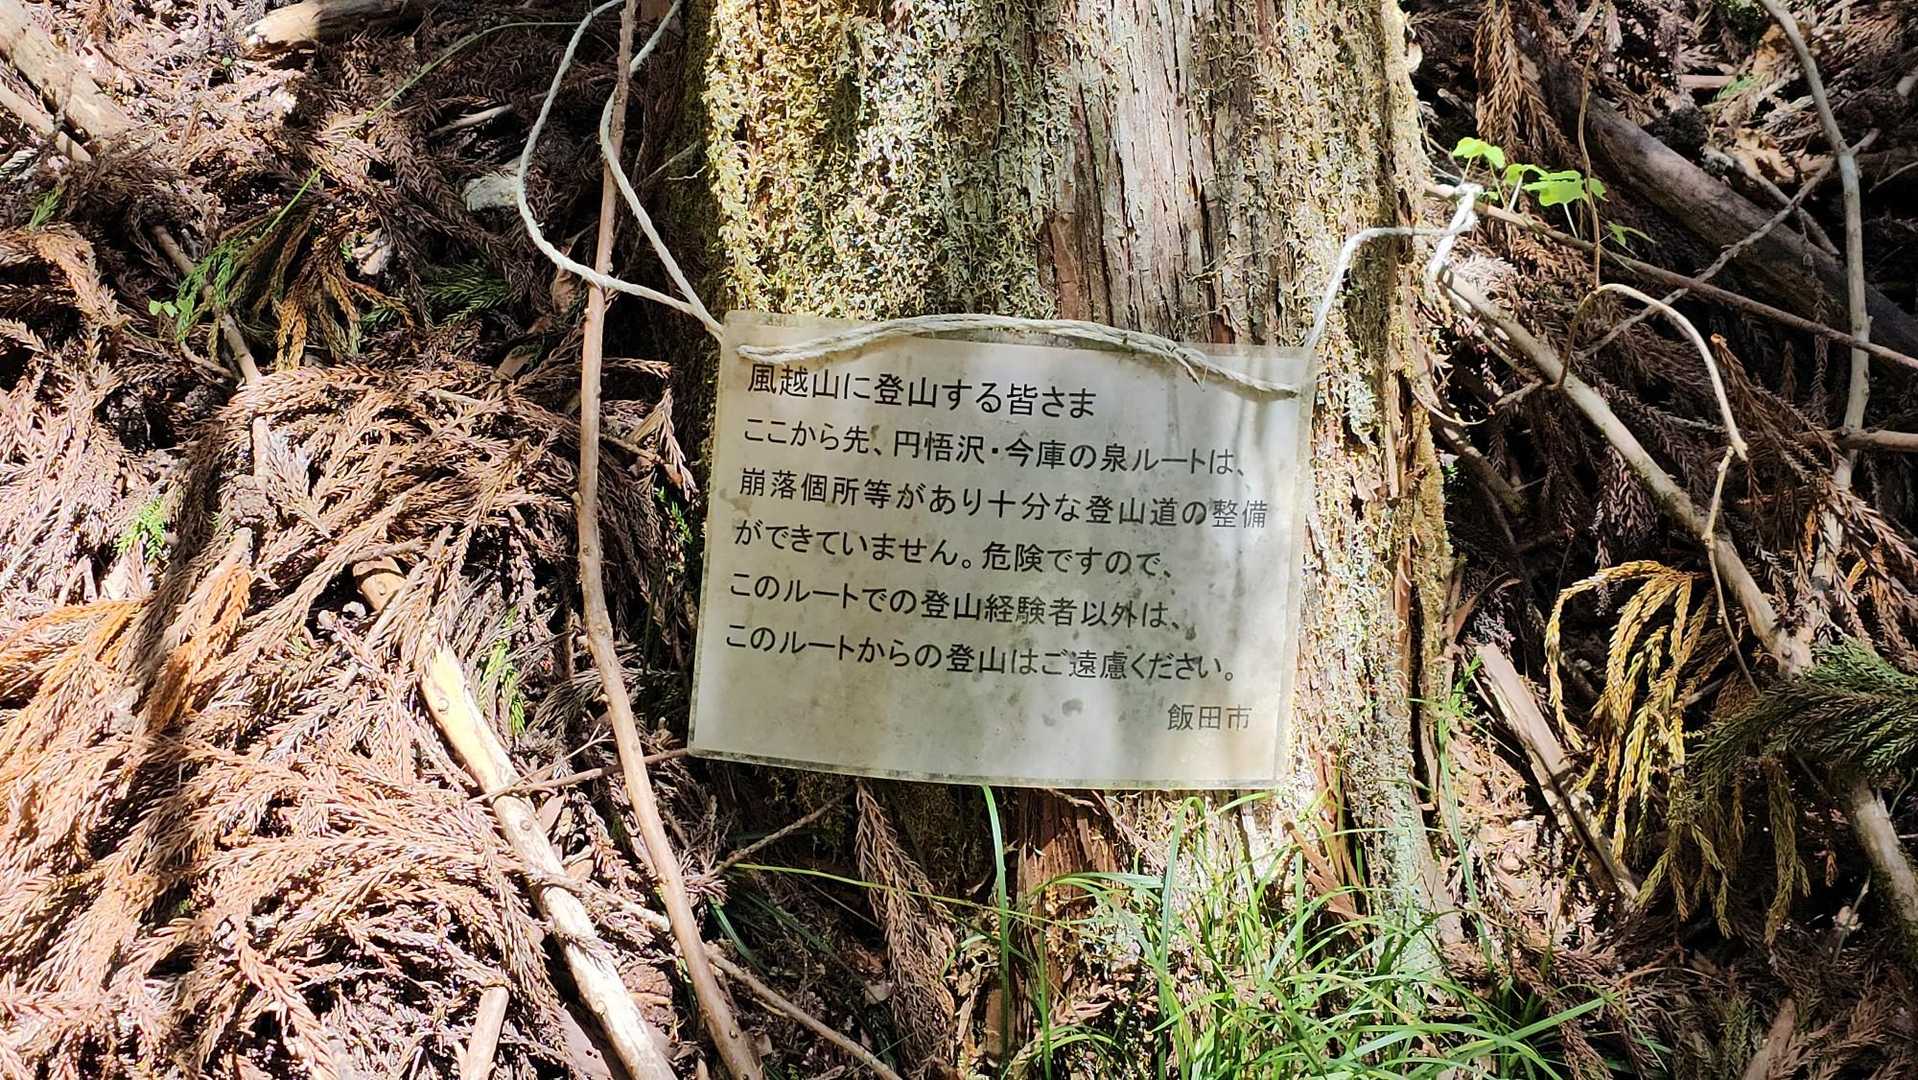 風越山に登山する皆さま
ここから先、円悟沢・今庫の泉ルートは、
崩落個所等があり十分な登山道の整備
ができていません。危険ですので、
このルートでの登山経験者以外は、
このルートからの登山はご遠慮ください。
飯田市